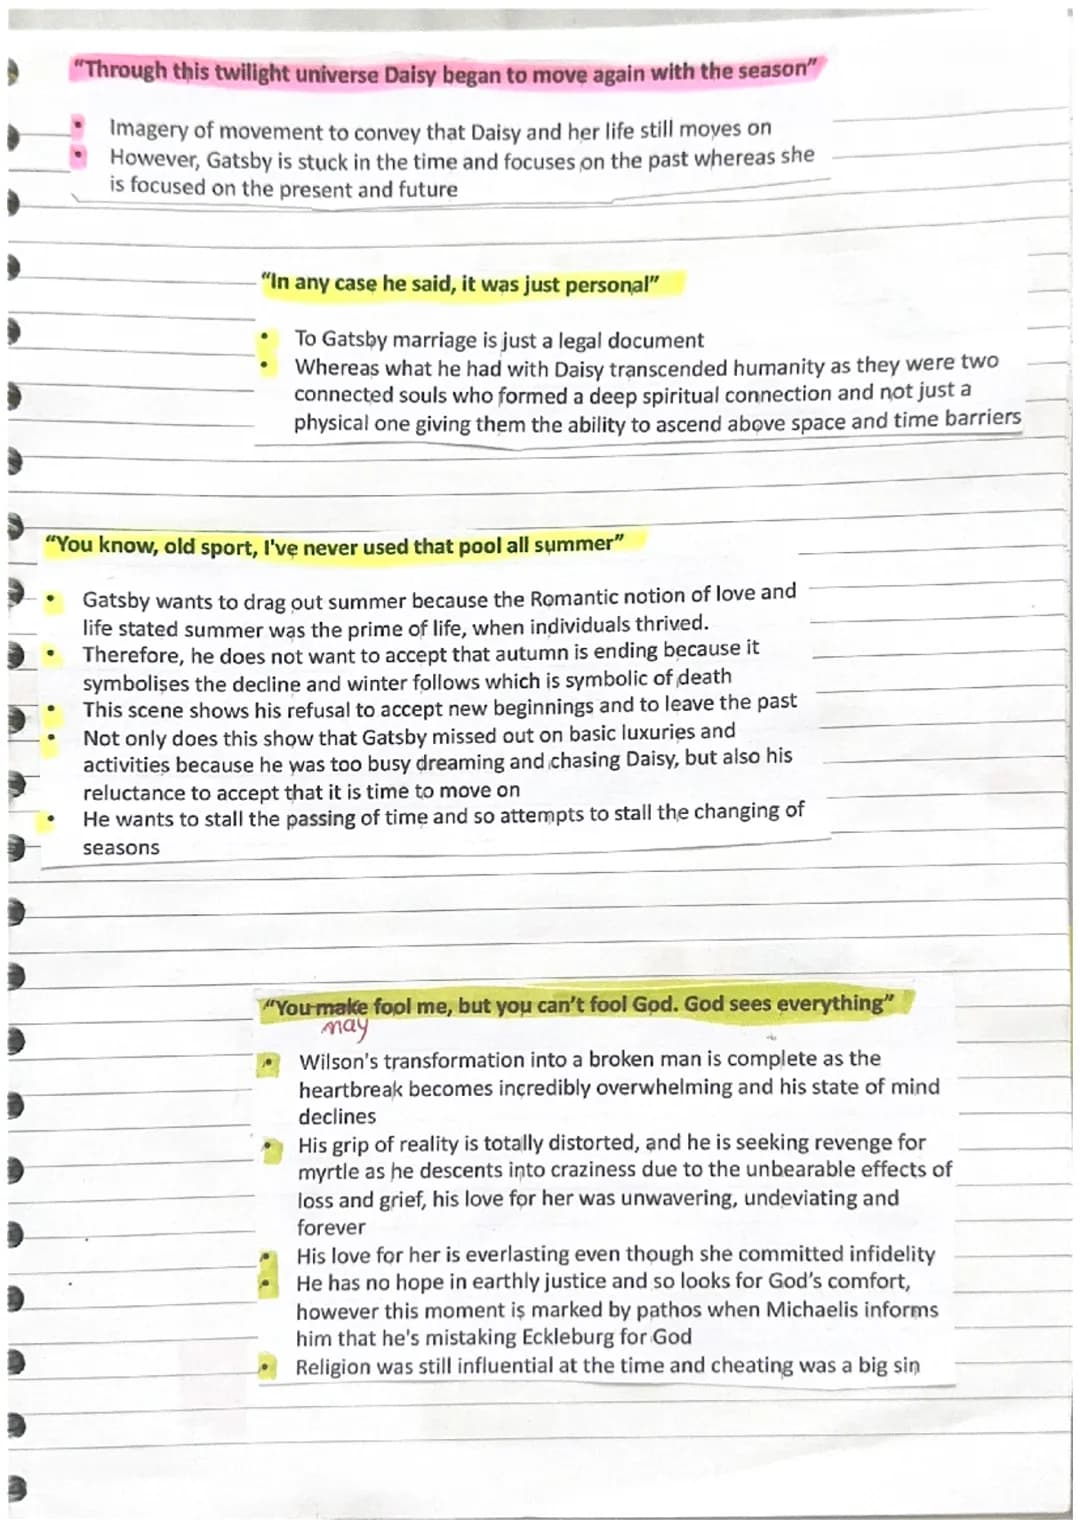 "Through this twilight universe Daisy began to move again with the season"
• Imagery of movement to convey that Daisy and her life still moves on
• However, Gatsby is stuck in the time and focuses on the past whereas she
is focused on the present and future
"In any case he said, it was just personal"
• To Gatsby marriage is just a legal document
• Whereas what he had with Daisy transcended humanity as they were two
connected souls who formed a deep spiritual connection and not just a
physical one giving them the ability to ascend above space and time barriers
"You know, old sport, I've never used that pool all summer"
• Gatsby wants to drag out summer because the Romantic notion of love and
life stated summer was the prime of life, when individuals thrived.
• Therefore, he does not want to accept that autumn is ending because it
symbolises the decline and winter follows which is symbolic of death
• This scene shows his refusal to accept new beginnings and to leave the past
• Not only does this show that Gatsby missed out on basic luxuries and
activities because he was too busy dreaming and chasing Daisy, but also his
reluctance to accept that it is time to move on
• He wants to stall the passing of time and so attempts to stall the changing of
seasons
"You make fool me, but you can't fool God. God sees everything"
may
• Wilson's transformation into a broken man is complete as the
heartbreak becomes incredibly overwhelming and his state of mind
declines
• His grip of reality is totally distorted, and he is seeking revenge for
myrtle as he descents into craziness due to the unbearable effects of
loss and grief, his love for her was unwavering, undeviating and
forever
• His love for her is everlasting even though she committed infidelity
• He has no hope in earthly justice and so looks for God's comfort,
however this moment is marked by pathos when Michaelis informs
him that he's mistaking Eckleburg for God
• Religion was still influential at the time and cheating was a big sin